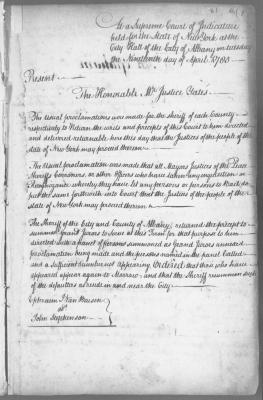 At a Supreme Court of Judicature
held for the State of New York at the
City Hall of the City of Albany on tuesday
the Nineteenth day of April 1785
Present
The Honorable Mr Justice Yates
The usual proclamations was made for the Sheriff of each County
respectively to Return the writs and precepts of this Court to him directed
and delivered returnable here this day that the Justices of the people of the
State of New York may proceed thereon
The Usual proclamation was made that all Mayors Justices of the Peace
Sheriffs Coroners, or other officers who have taken any inquisition or
Recognizance whereby they have let any person or persons to Bail do
put the same forthwith into Court that the Justices of the people of the
State of New York may proceed thereon
The Sheriff of the City and County of Albany, returned the precept to
summon grand Jurors to serve at this Term for that purpose to him
directed with a panel of persons summoned as Grand Jurors annexed
proclamation being made and the persons named in the panel Called
and a sufficient number not appearing Ordered that those who have
appeared appear again to Morrow and that the Sheriff resummon such
of the defaulters as reside in and near the City
Ephraim J Van Heusen
John Stephenson